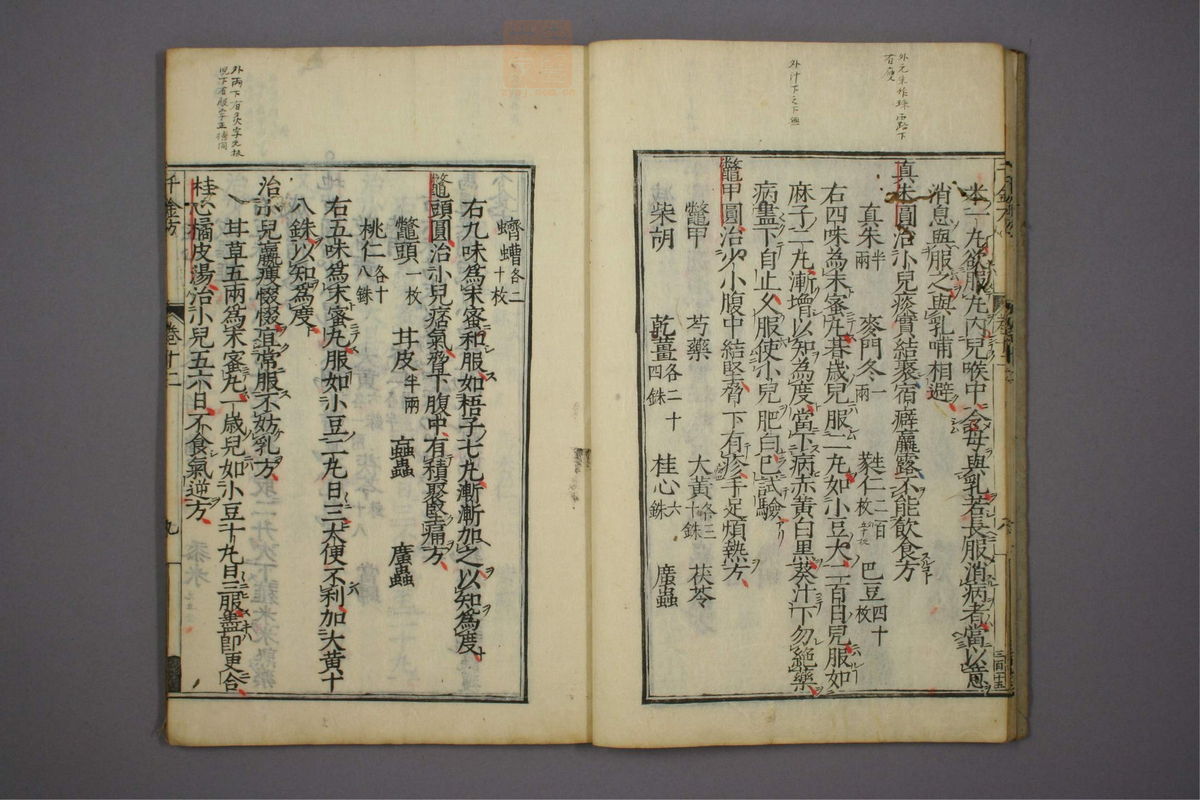 本一丸欲服丸内兒喉中令母與乳若長服消病者當以意
消息與服之與乳哺相避
真朱圓治小兒痰實結聚宿癖羸露不能飲食方
真朱半兩 麥門冬一兩 蕤仁二百枚 巴豆四十枚
右四味為末蜜丸朞歲兒服二丸如小豆大二百日兒服如
麻子二丸漸增以知為度當下病赤黃白黑葵汁下勿絕藥
病盡下自止久服使小兒肥白已試驗
鱉甲圓治少小腹中結堅脅下有疹手足煩熱方
鱉甲 芍藥 大黃各三十銖 茯苓
柴胡 乾薑各二十四銖 桂心六銖 䗪蟲
蠐螬各二十枚
右九味為末蜜和服如梧子七丸漸漸加之以知為度
鱉頭圓治小兒痞氣脅下腹中有積聚堅痛方
鱉頭一枚 甘皮半兩 蝱蟲 䗪蟲
桃仁各十八銖
右五味爲末蜜丸服如小豆二丸日三大便不利加大黃十
八銖以知為度
治小兒羸瘦惙惙宜常服不妨乳方
甘草五兩爲末蜜丸一歲兒如小豆十丸日三服盡即更合
桂心橘皮湯治小兒五六日不食氣逆方
千金方
卷十二
九